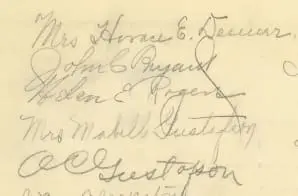 Mrs Horace E. Denear.
John C Bryant
Helen E Rogers
Mrs Mabell Gustafson
O C Gustafson